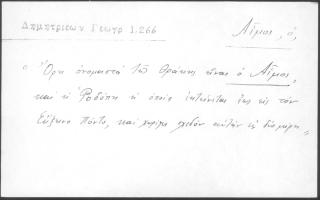 Δημητριέων Γεωγρ 1,266
Αἷμος, ὁ,
Ὄρη ὀνομαστὰ τῆς Θράκης εἶναι ὁ Αἷμος,
καὶ ἡ Ῥοδόπη ἡ ὁποία ἐκτείνεται ἕως εἰς τὸν
Εὔξεινο Πόντο, καὶ χωρίζει σχεδὸν αὐτὴν εἰς δύο μέρη.